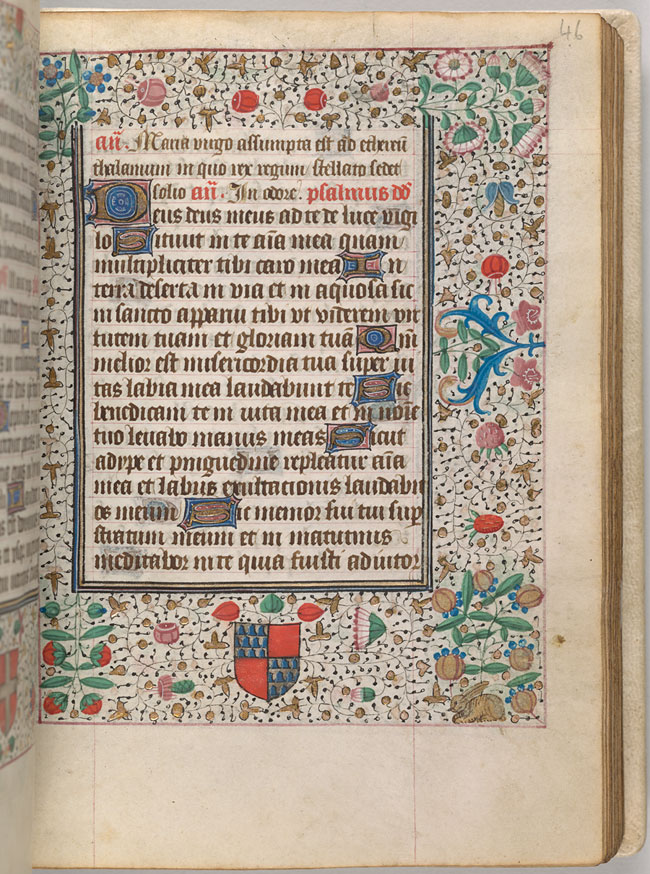 46
añ. Maria virgo assumpta est ad ethereũ
thalamum in quo rex regum stellato sedet
solio añ. In odore. psalmus dd̃
Deus deus meus ad te de luce vigi
lo Sitiuit in te aĩa mea quam
multipliciter tibi caro mea In
terra deserta in via et in aquosa sic
in sancto apparui tibi vt viderem vir
tutem tuam et gloriam tuã Qm̃
melior est misericordia tua super vi
tas labia mea laudabunt te Sic
benedicam te in vita mea et in noĩe
tuo leuabo manus meas Sicut
adype et pinguedine repleatur aĩa
mea et labiis exultacionis laudabit
os meum Sic memor fui tui sup̃
stratum meum et in matutinis
meditabor in te quia fuisti adiutor